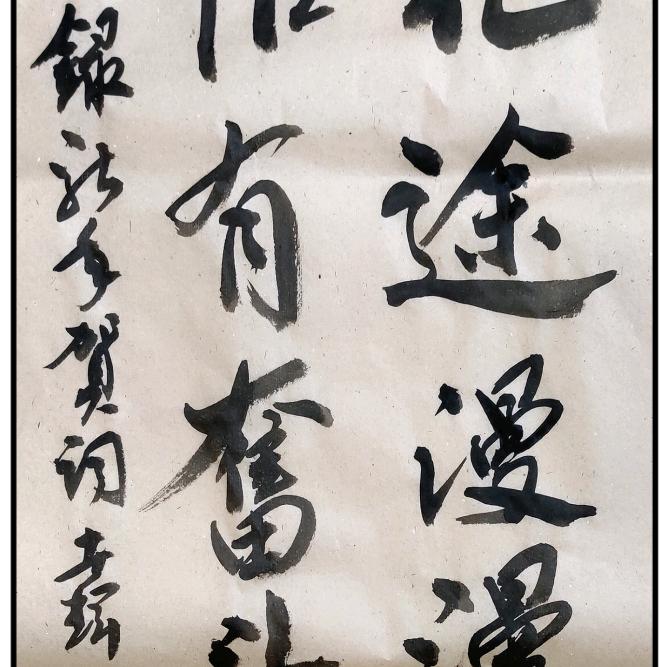 途漫漫
有奮
録新年賀詞